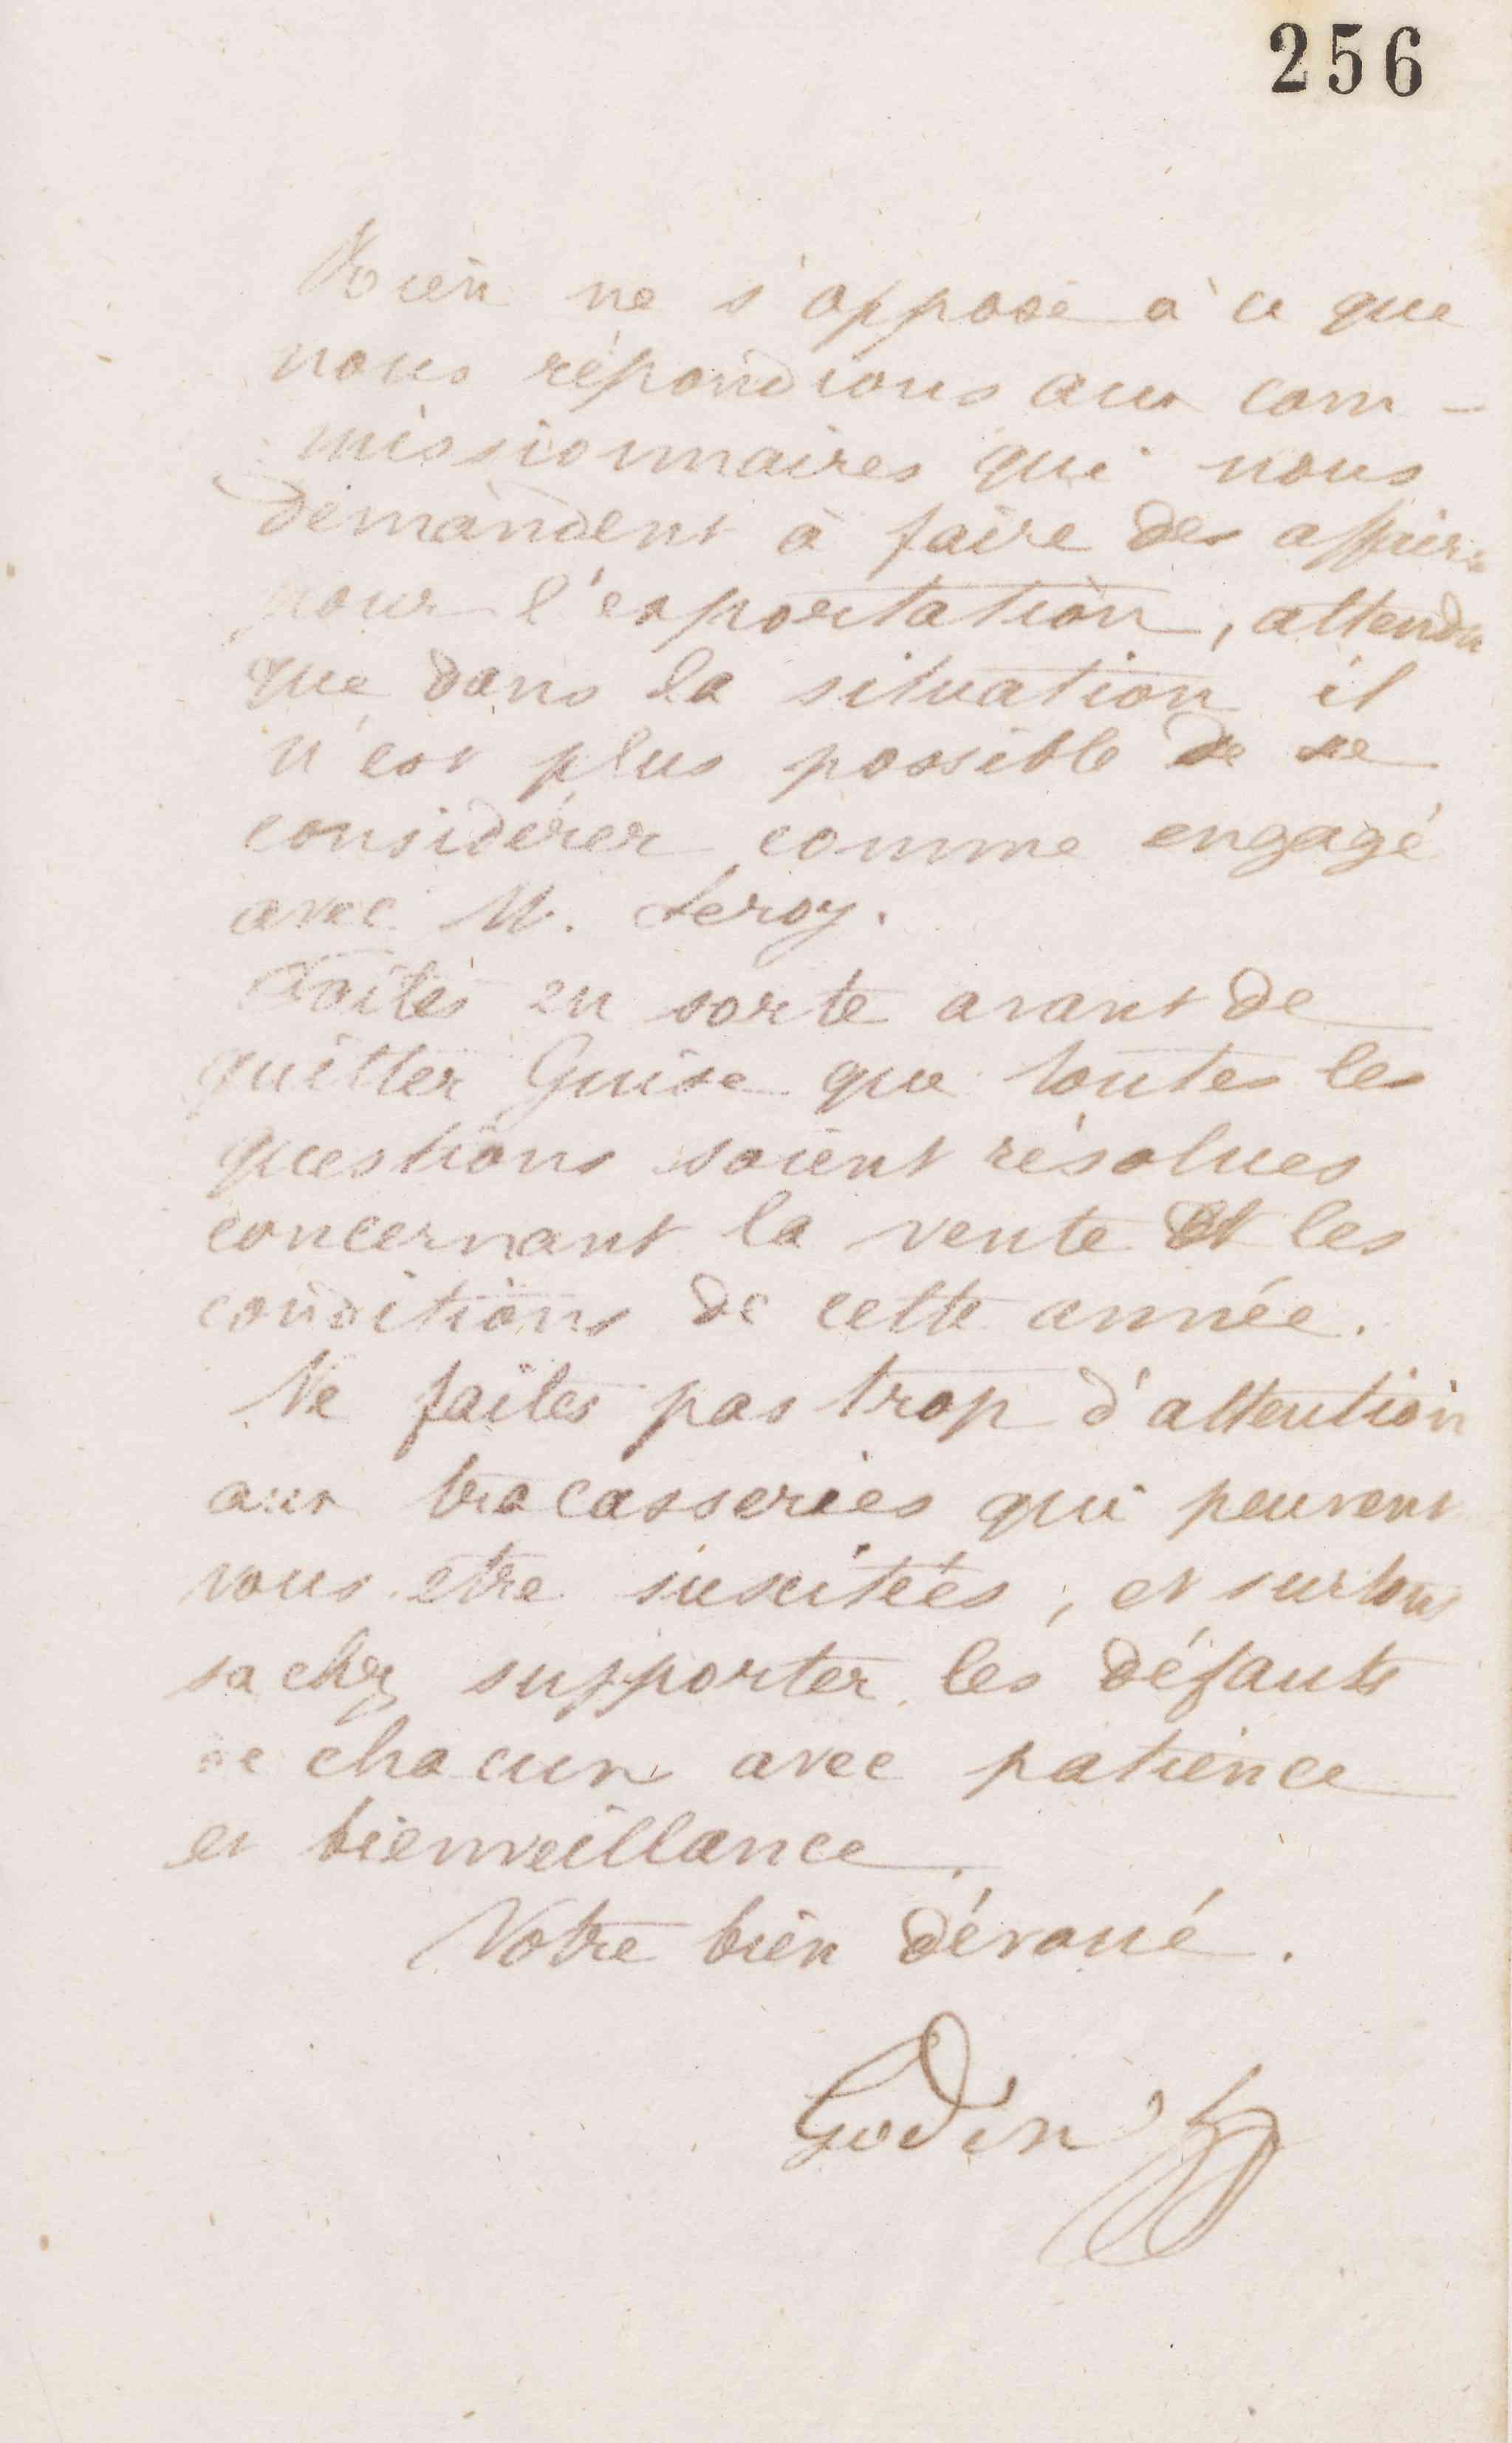 256
Rien ne s'oppose à ce que
nous répondions aux com-
missionnaires qui nous
demandent à faire des affaires
pour l'exportation, attendu
que dans la situation il
n'est plus possible de se
considérer comme engagé
avec M. Leroy.
Faites en sorte avant de
quitter Guise que toutes les
questions soient résolues
concernant la vente et les
conditions de cette année.
Ne faites pas trop d'attention
aux tracasseries qui peuvent
vous etre suscitées, et surtout
sachez supporter les défauts
de chacun avec patience
et bienveillance.
Votre bien dévoué.
Godin